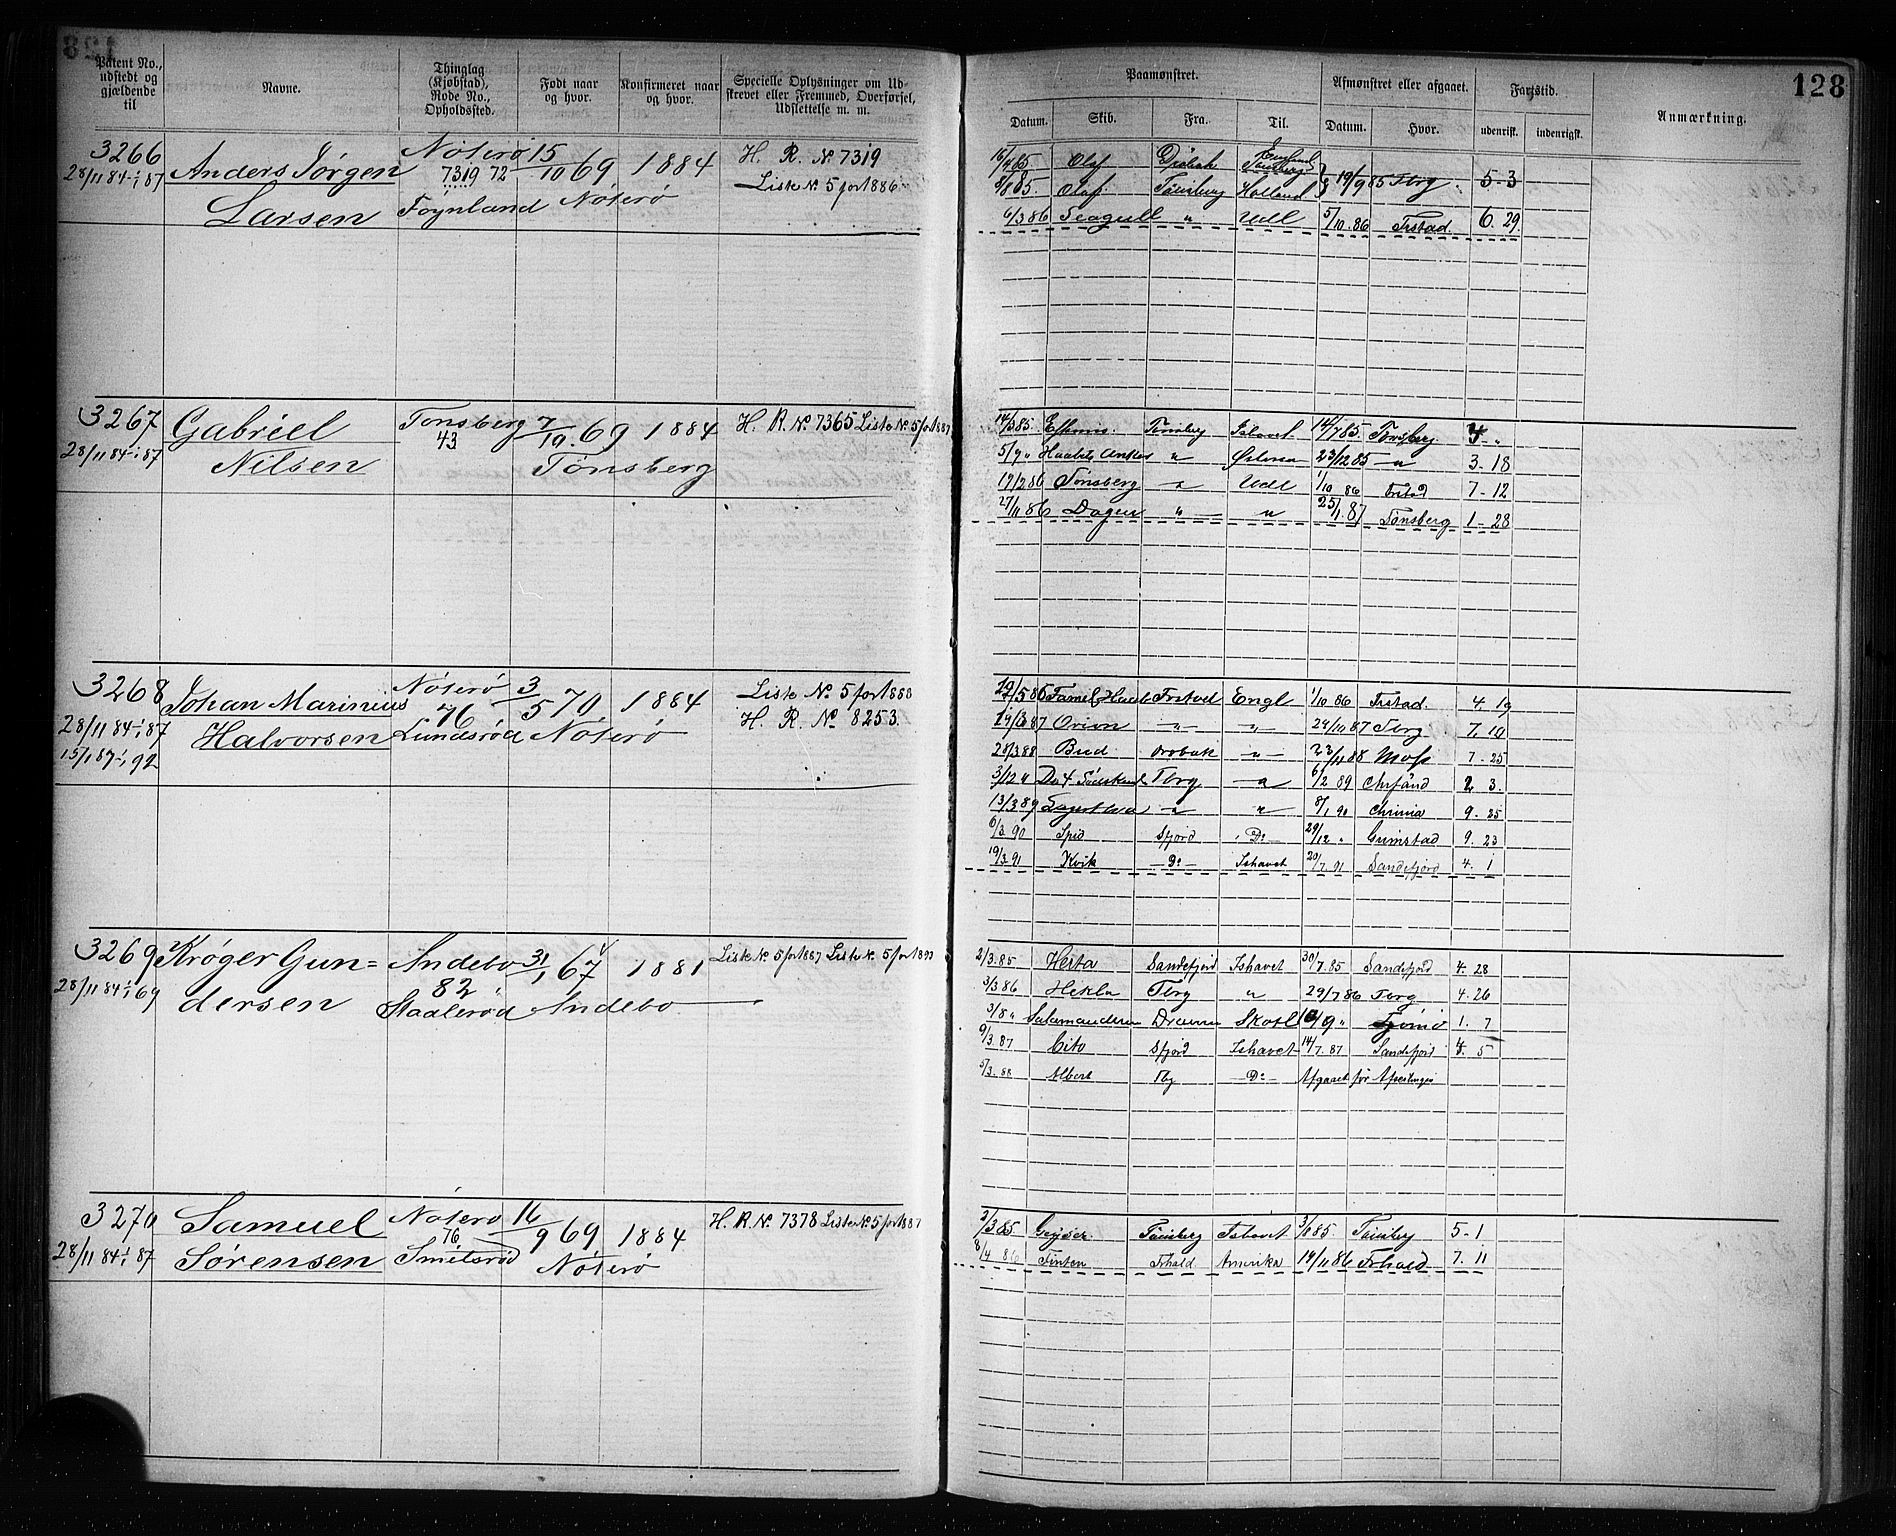 128
Patent No., udstedt og gjældende til
Navne.
Thinglag (Kjøbstad), Rode No., Opholdssted.
Født naar og hvor.
Konfirmeret naar og hvor.
Specielle Oplysninger om Udskrevet eller Fremmed, Overførsel, Udslettelse m. m.
Paamønstret.
Afmønstret eller afgaaet.
Fartstid.
Anmærkning.
Datum. Skib. Fra. Til. Datum. Hvor. udenrisk. indenrigsk.
3266 Anders Jørgen Nøterø 15/10 69 1884 H. R. № 7319
28/11 84-1/1 87 Larsen 7319 72 Nøterø Liste № 5 for 1886
Føynland
Olaf Tønsberg Holland 19/9 85 Tbrg 5-3
6/3 86 Seagull " Udl 5/10.86 Frstad. 6. 29
3267 Gabriel Tønsberg 7/10.69 1884 H. R. № 7365 Liste № 5 for 1887
28/11 84-1/1 87 Nilsen 43 Tønsberg
14/3 85 Tønsberg Ishavet 14/7 85 Tønsberg 4 "
5/9 " " 23/12 85 " 3-18
17/2 86 Tønsberg " Udl 1/10 86 Frstad 7-12
27/11 86 Dagen " " 25/1 87 Tønsberg 1-28
3268 Johan Marinius Nøterø 3/5 70 1884 Liste № 5 for 1888
28/11 84-1/1 87 Halvorsen 76 Lundsrød Nøterø H. R. № 8253
15/1 87-1/1 92
Frstad Engl 1/10 86 Frstad. 4. 19
14/3 87 Orion " " 24/10 87 Tbrg 7. 10
28/3 88 Bud Drøbak " 23/11 88 Moss 7-25
Tbrg " 6/2 89 Chrsand 2 3.
13/3 89 " " 8/1 90 Chrinia 9. 25
6/3 90 Spid Sfjord Do 29/12 " Grimstad 9. 23
19/3 91 Kvik Do Ishavet 20/7 91 Sandefjord 4. 1
3269 Krøger Gun= Andebo 31/1 67 4 1881 Liste № 5 for 1887 Liste №. 5 for 1899
28/11 84-1/1 69 dersen 82 Staalerød Andebo
2/3.85 Herta Sandefjord Ishavet 30/7.85 Sandefjord 4. 28
3/3 86 Hekla Tbrg " 29/7 86 Tbrg 4.26
3/8 " Salamanderen Drammen Skotl " Tjømø 1. 7
9/3.87 Cito Sfjord Ishavet 14/7.87 Sandefjord 4. 5
5/3.88 Albert Tbg Do Afgaaet før Afreisen
3270 Samuel Nøterø 16/9 69 1884 H. R. № 7378 Liste № 5 for 1887
28/11 84-1/1 87 Sørensen 76 Smidsrød Nøterø
2/3 85 Geyser. Tønsberg Ishavet 3/8 85 Tønsberg 5-1
8/4 86 Frhald Amerika 19/11 86 Frhald 7. 11